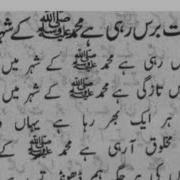 ت برس رہی ہے محمد ﷺ کے شہر
س رہی ہے محمد ﷺ کے شہر میں
س تازگی ہے محمد ﷺ کے شہر میں
ہر ایک بھر رہا ہے یہاں
مخلوق آرہی ہے محمد ﷺ کے